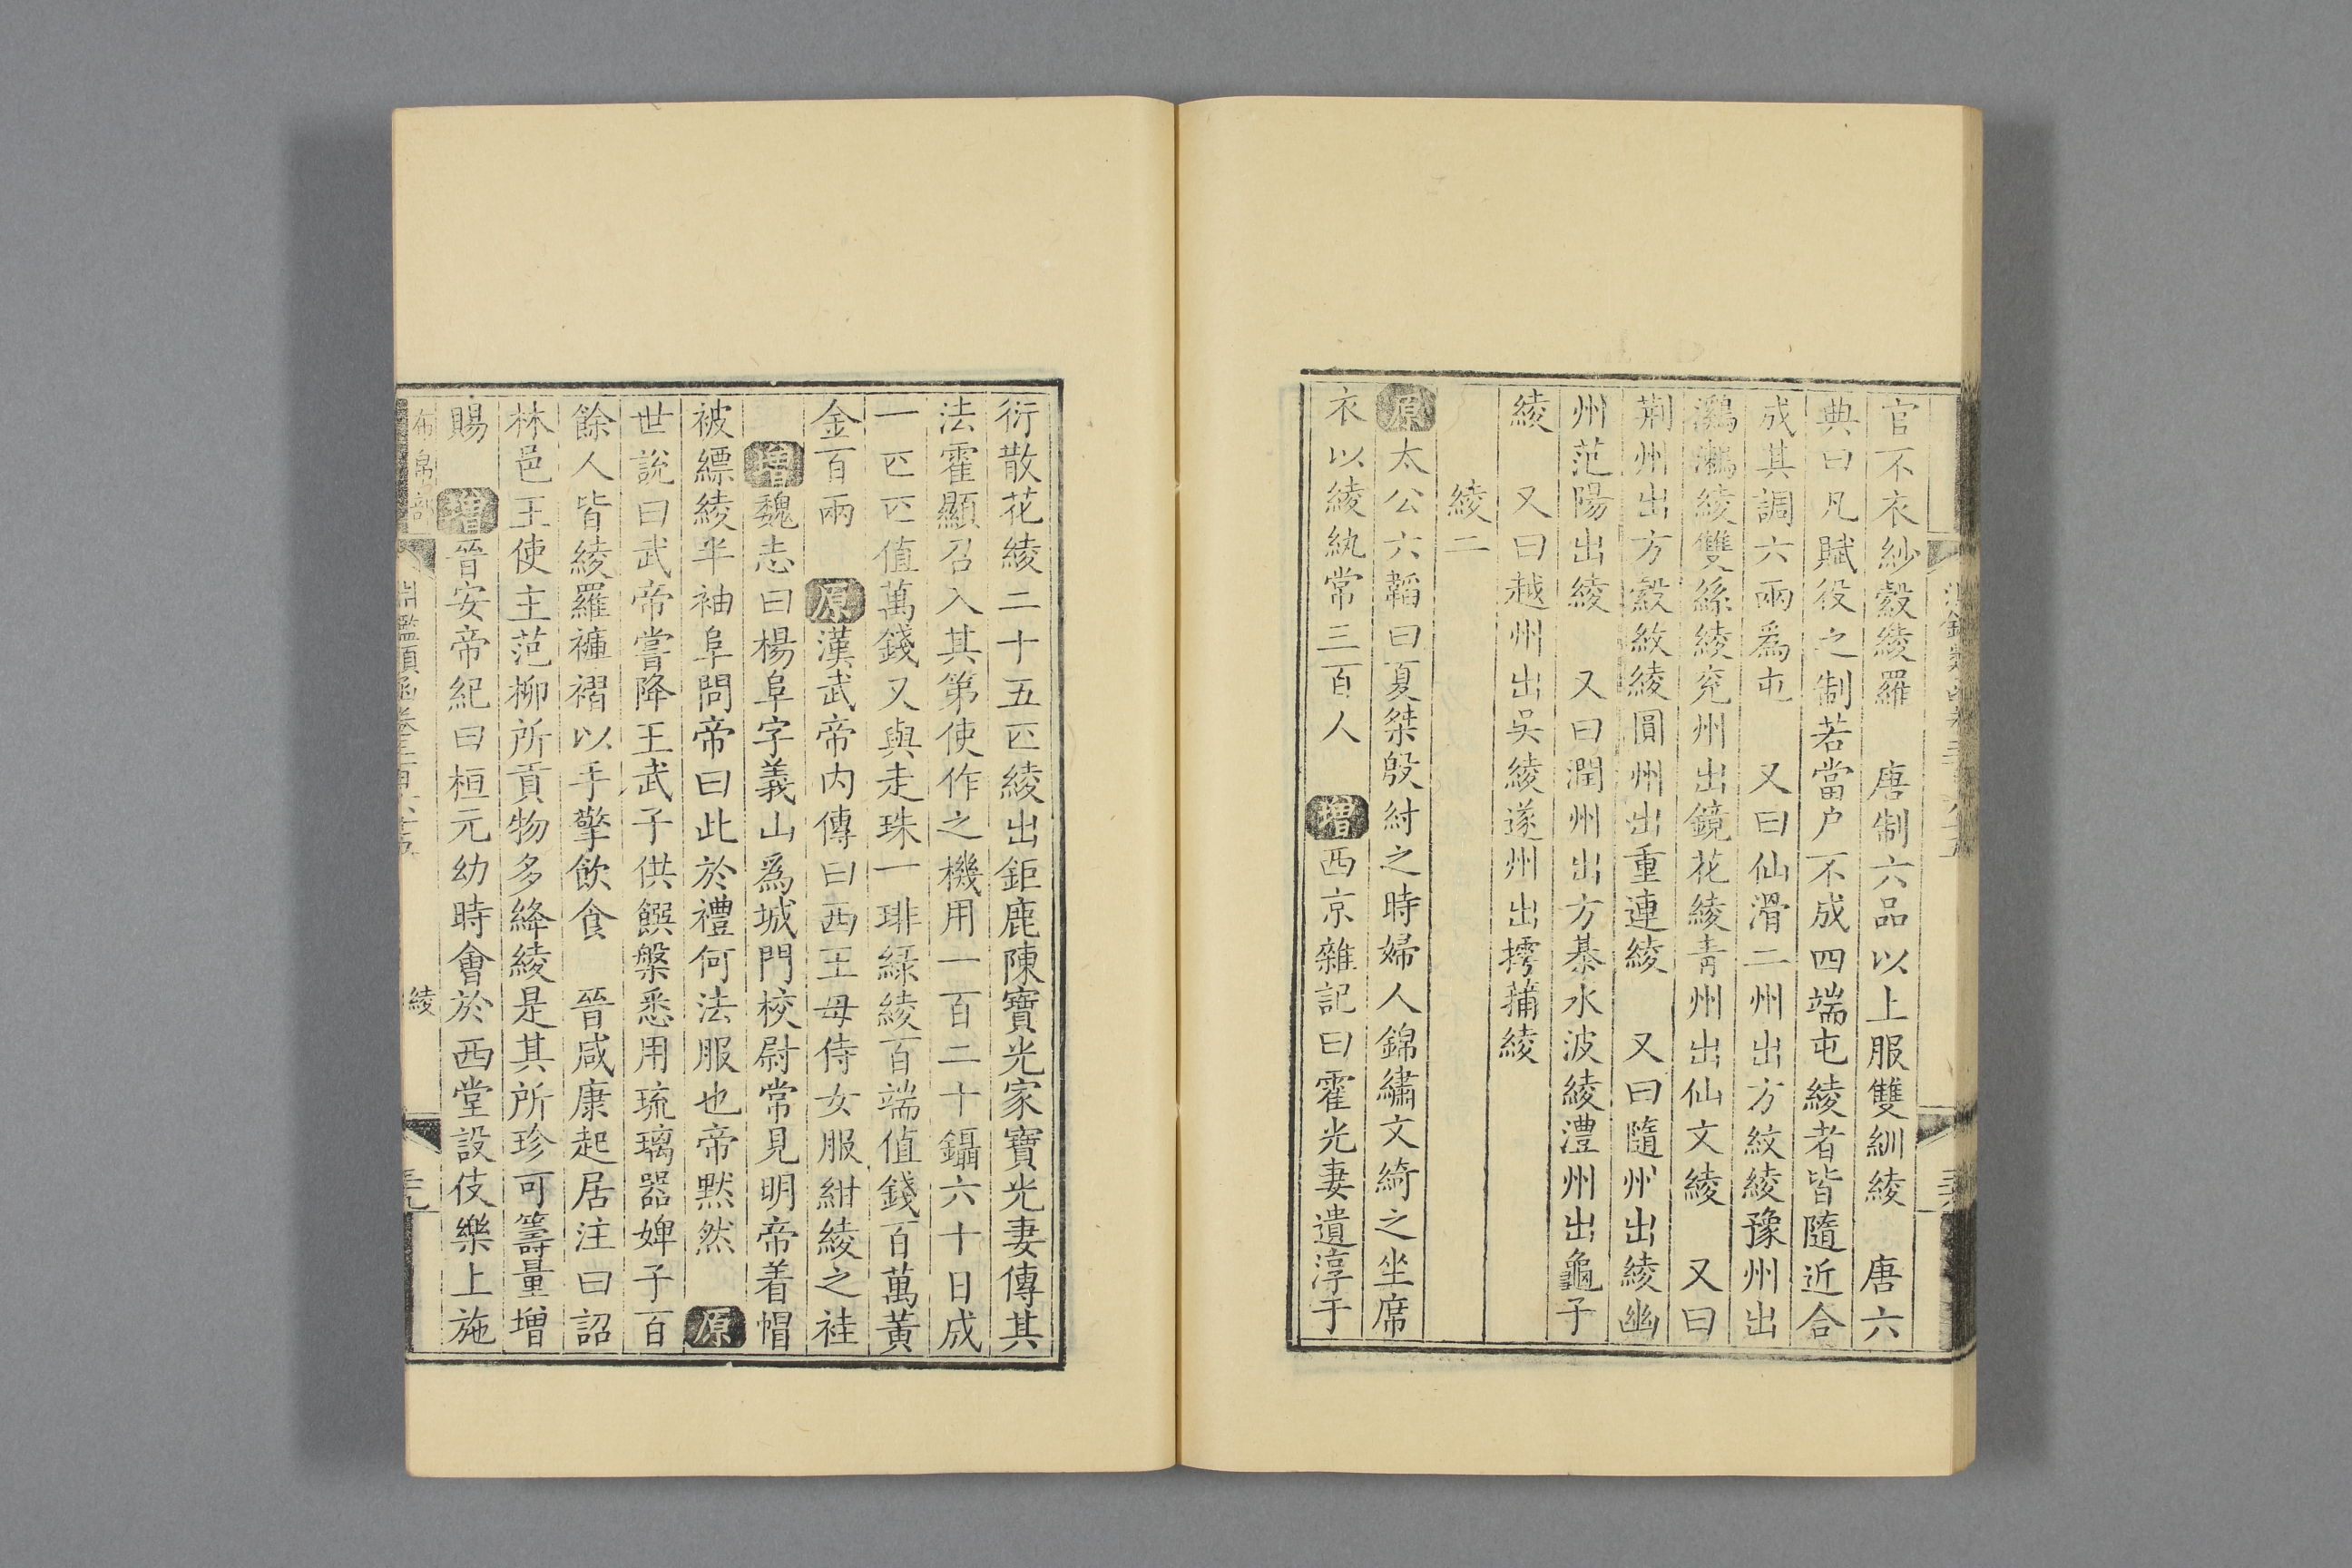 官不衣紗縠綾羅　唐制六品以上服雙紃綾　唐六
典曰凡賦役之制若當户不成四端屯綾者皆隨近合
成其調六兩爲屯　又曰仙滑二州出方紋綾豫州出
鸂鶒綾雙絲綾兖州出鏡花綾青州出仙文綾　又曰
荆州出方縠紋綾圓州出重連綾　又曰隨州出綾幽
州范陽出綾　又曰潤州出方棊水波綾澧州出龜子
綾　又曰越州出吳綾遂州出摴蒱綾
綾二
原太公六韜曰夏桀殷紂之時婦人錦繡文綺之坐席
衣以綾紈常三百人　增西京雜記曰霍光妻遺淳于
衍散花綾二十五匹綾出鉅鹿陳寶光家寶光妻傳其
法霍顯召入其第使作之機用一百二十鑷六十日成
一匹匹值萬錢又與走珠一琲綠綾百端值錢百萬黃
金百兩　原漢武帝内傳曰西王母侍女服紺綾之袿
增魏志曰楊阜字義山爲城門校尉常見明帝着帽
被縹綾半袖阜問帝曰此於禮何法服也帝默然　原
世說曰武帝嘗降王武子供饌槃悉用琉璃器婢子百
餘人皆綾羅褲褶以手擎飲食　晉咸康起居注曰詔
林邑王使主范柳所貢物多絳綾是其所珍可籌量增
賜　增晉安帝紀曰桓元幼時會於西堂設伎樂上施
布帛部　淵鑑類函卷三百　綾